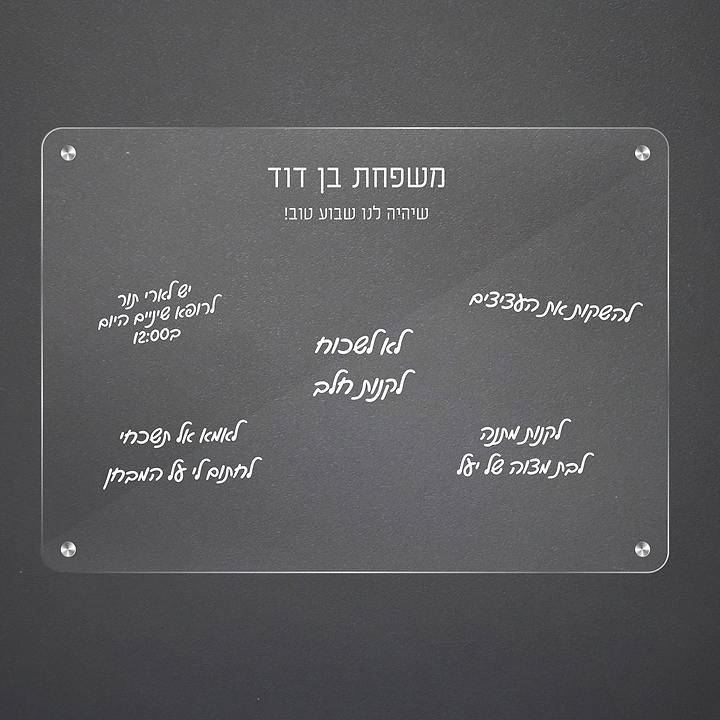 משפחת בן דוד
שיהיה לנו שבוע טוב!
להשקות את העציצים
לא לשכוח
לקנות חלב
יש לארי תור
לרופא שיניים היום
ב12:00
לקנות מתנה
לבת מצוה של יעל
לאמא אל תשכחי
לחתום לי על המבחן